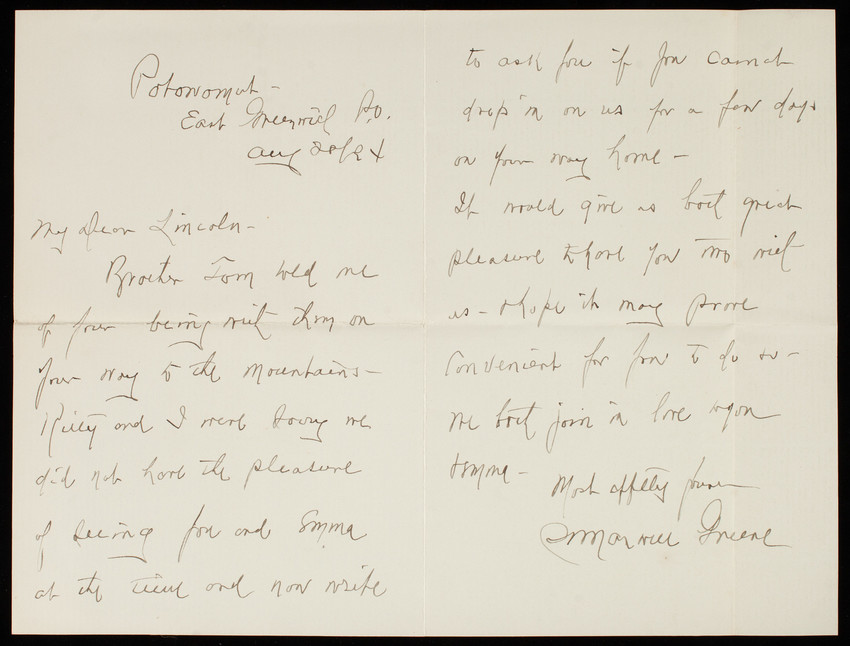 Potowomut -
East Greenwich P.O.
Aug 28/94
My Dear Lincoln -
Brother Tom told me
of your being with them on
your way to the mountains -
Kitty and I were sorry we
did not have the pleasure
of seeing you and Emma
at the time and now write
to ask you if you cannot
drop in on us for a few days
on your way home -
It would give us both great
pleasure to have you two with
us - & hope it may prove
convenient for you to do so -
We both join in love to you
& Emma -
Most affctly yours
Maxwell Greene